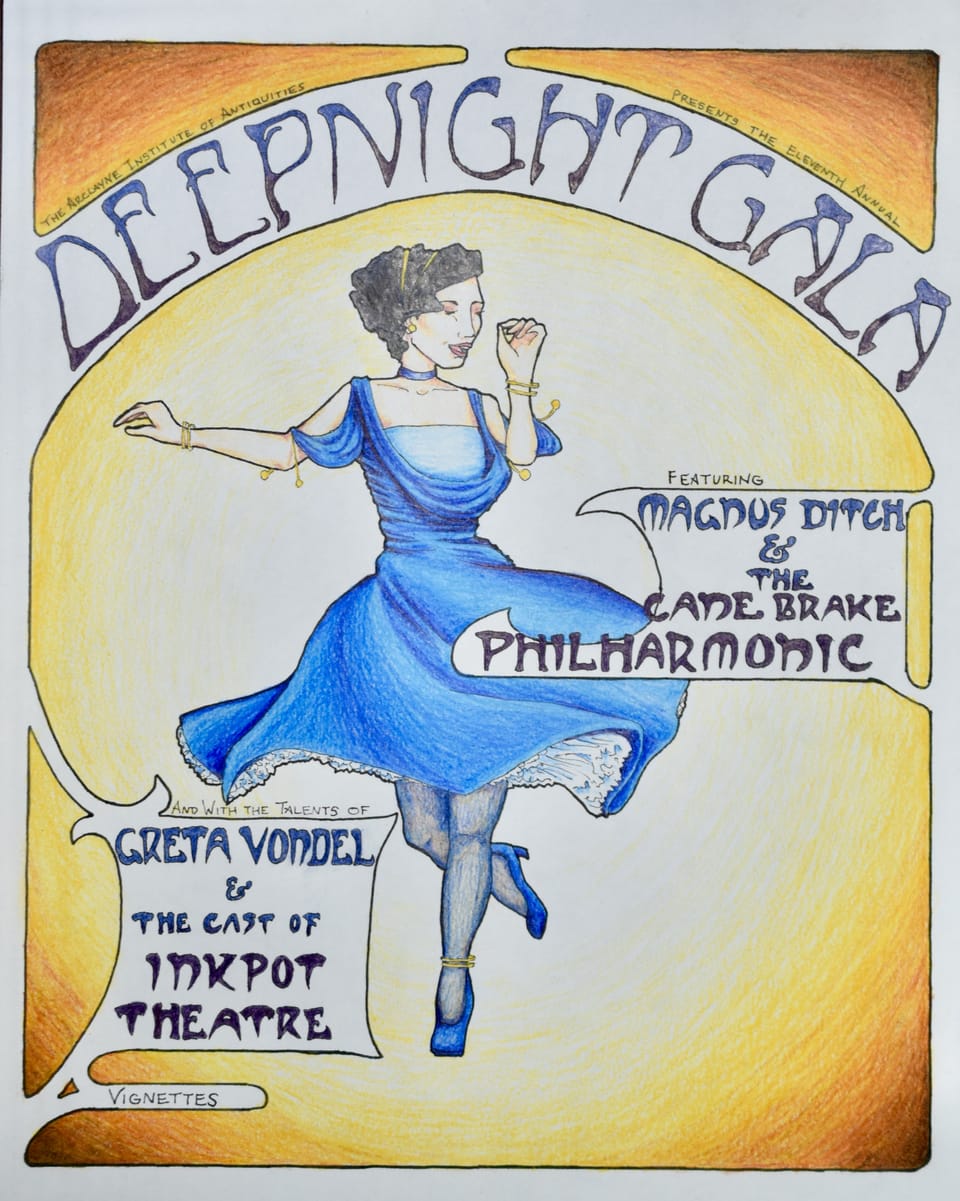 THE ARCLAYNE INSTITUTE OF ANTIQUITIES
PRESENTS THE ELEVENTH ANNUAL
DEEPNIGHT GALA
FEATURING
MAGNUS DITCH
&
THE
CANE BRAKE
PHILHARMONIC
AND WITH THE TALENTS OF
GRETA VONDEL
&
THE CAST OF
INKPOT
THEATRE
VIGNETTES